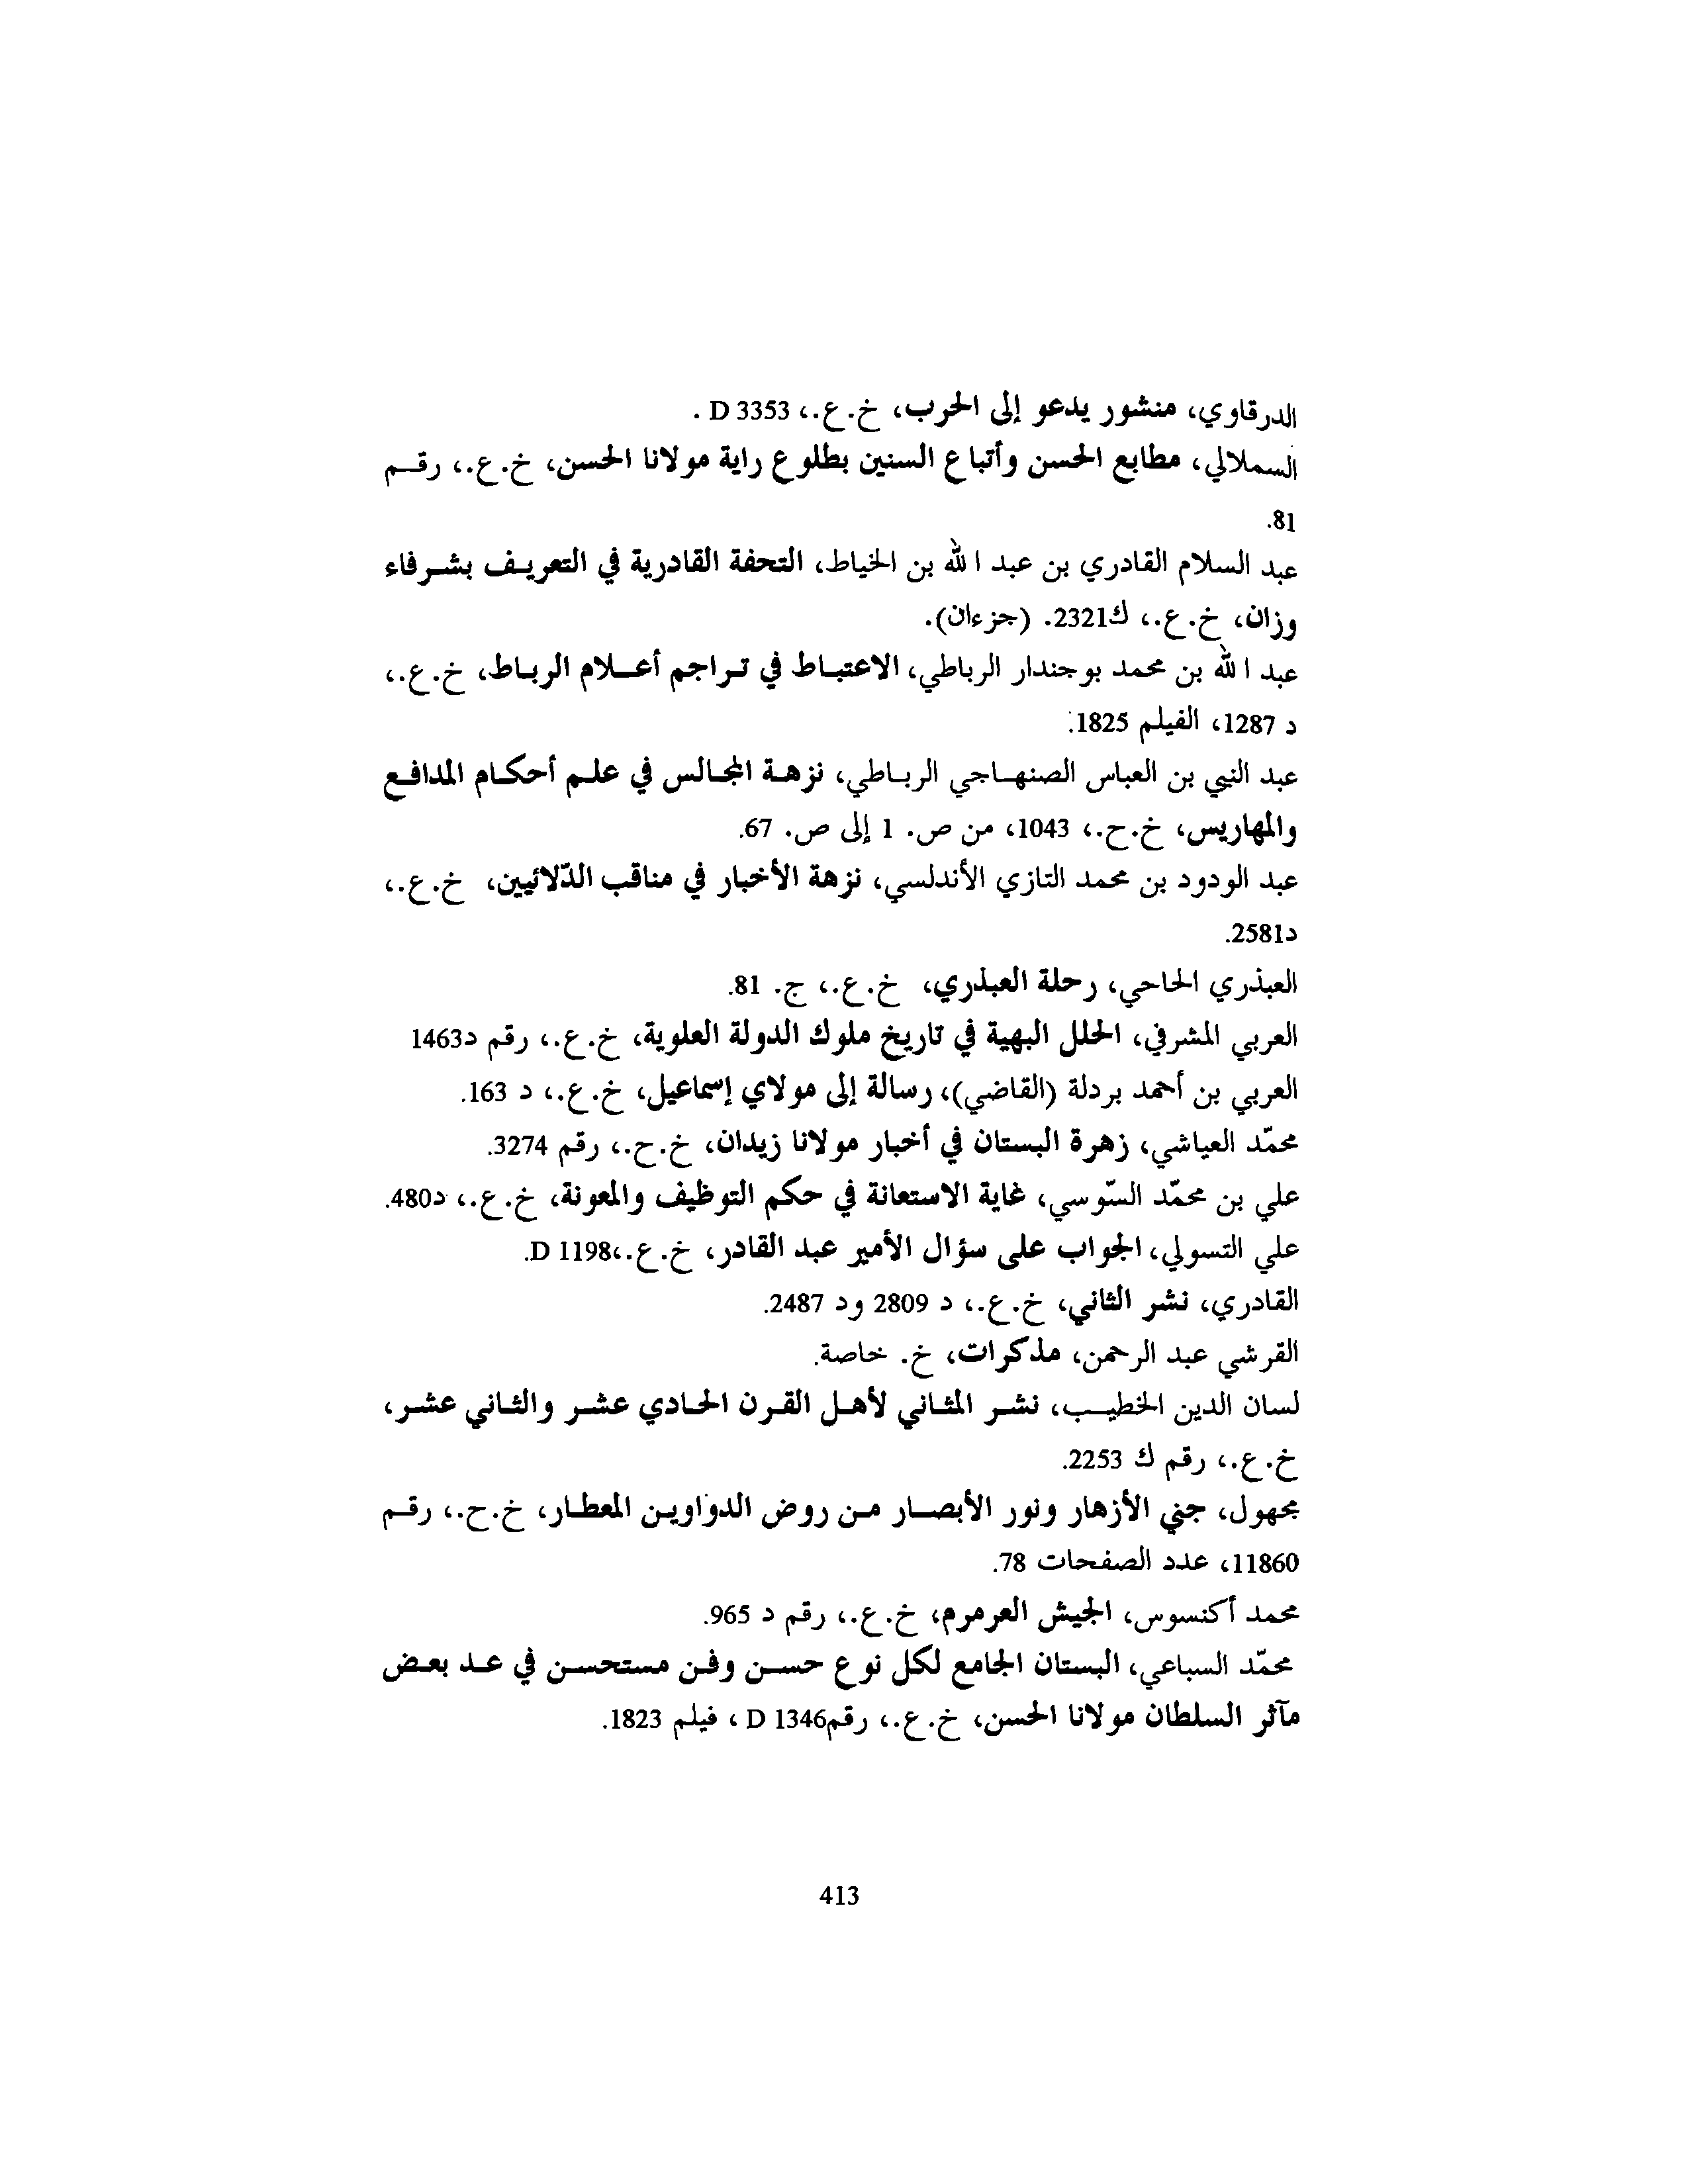 الدرقاوي، منشور يدعو إلى الحرب، خ.ع.، D 3353 .
السملالي، مطابع الحسن وأتباع السنين بطلوع راية مولانا الحسن، خ.ع.، رقم
81.
عبد السلام القادري بن عبد الله بن الخياط، التحفة القادرية في التعريف بشرفاء
وزان، خ.ع.، ك2321. (جزءان).
عبد الله بن محمد بوجندار الرباطي، الاعتباط في تراجم أعلام الرباط، خ.ع.،
د 1287، الفيلم 1825.
عبد النبي بن العباس الصنهاجي الرباطي، نزهة المجالس في علم أحكام المدافع
والمهاريس، خ.ح.، 1043، من ص. 1 إلى ص. 67.
عبد الودود بن محمد التازي الأندلسي، نزهة الأخبار في مناقب الدّلائيين، خ.ع.،
د2581.
العبذري الحاحي، رحلة العبذري، خ.ع.، ج. 81.
العربي المشرفي، الحلل البهية في تاريخ ملوك الدولة العلوية، خ.ع.، رقم د1463
العربي بن أحمد بردلة (القاضي)، رسالة إلى مولاي إسماعيل، خ.ع.، د 163.
محمّد العياشي، زهرة البستان في أخبار مولانا زيدان، خ.ح.، رقم 3274.
علي بن محمّد السّوسي، غاية الاستعانة في حكم التوظيف والمعونة، خ.ع.، د480.
علي التسولي، الجواب على سؤال الأمير عبد القادر، خ.ع.،D 1198.
القادري، نشر الثاني، خ.ع.، د 2809 ود 2487.
القرشي عبد الرحمن، مذكرات، خ. خاصة.
لسان الدين الخطيب، نشر المثاني لأهل القرن الحادي عشر والثاني عشر،
خ.ع.، رقم ك 2253.
مجهول، جني الأزهار ونور الأبصار من روض الدواوين المعطار، خ.ح.، رقم
11860، عدد الصفحات 78.
محمد أكنسوس، الجيش العرمرم، خ.ع.، رقم د 965.
محمّد السباعي، البستان الجامع لكل نوع حسن وفن مستحسن في عد بعض
مآثر السلطان مولانا الحسن، خ.ع.، رقمD 1346 ، فيلم 1823.
413